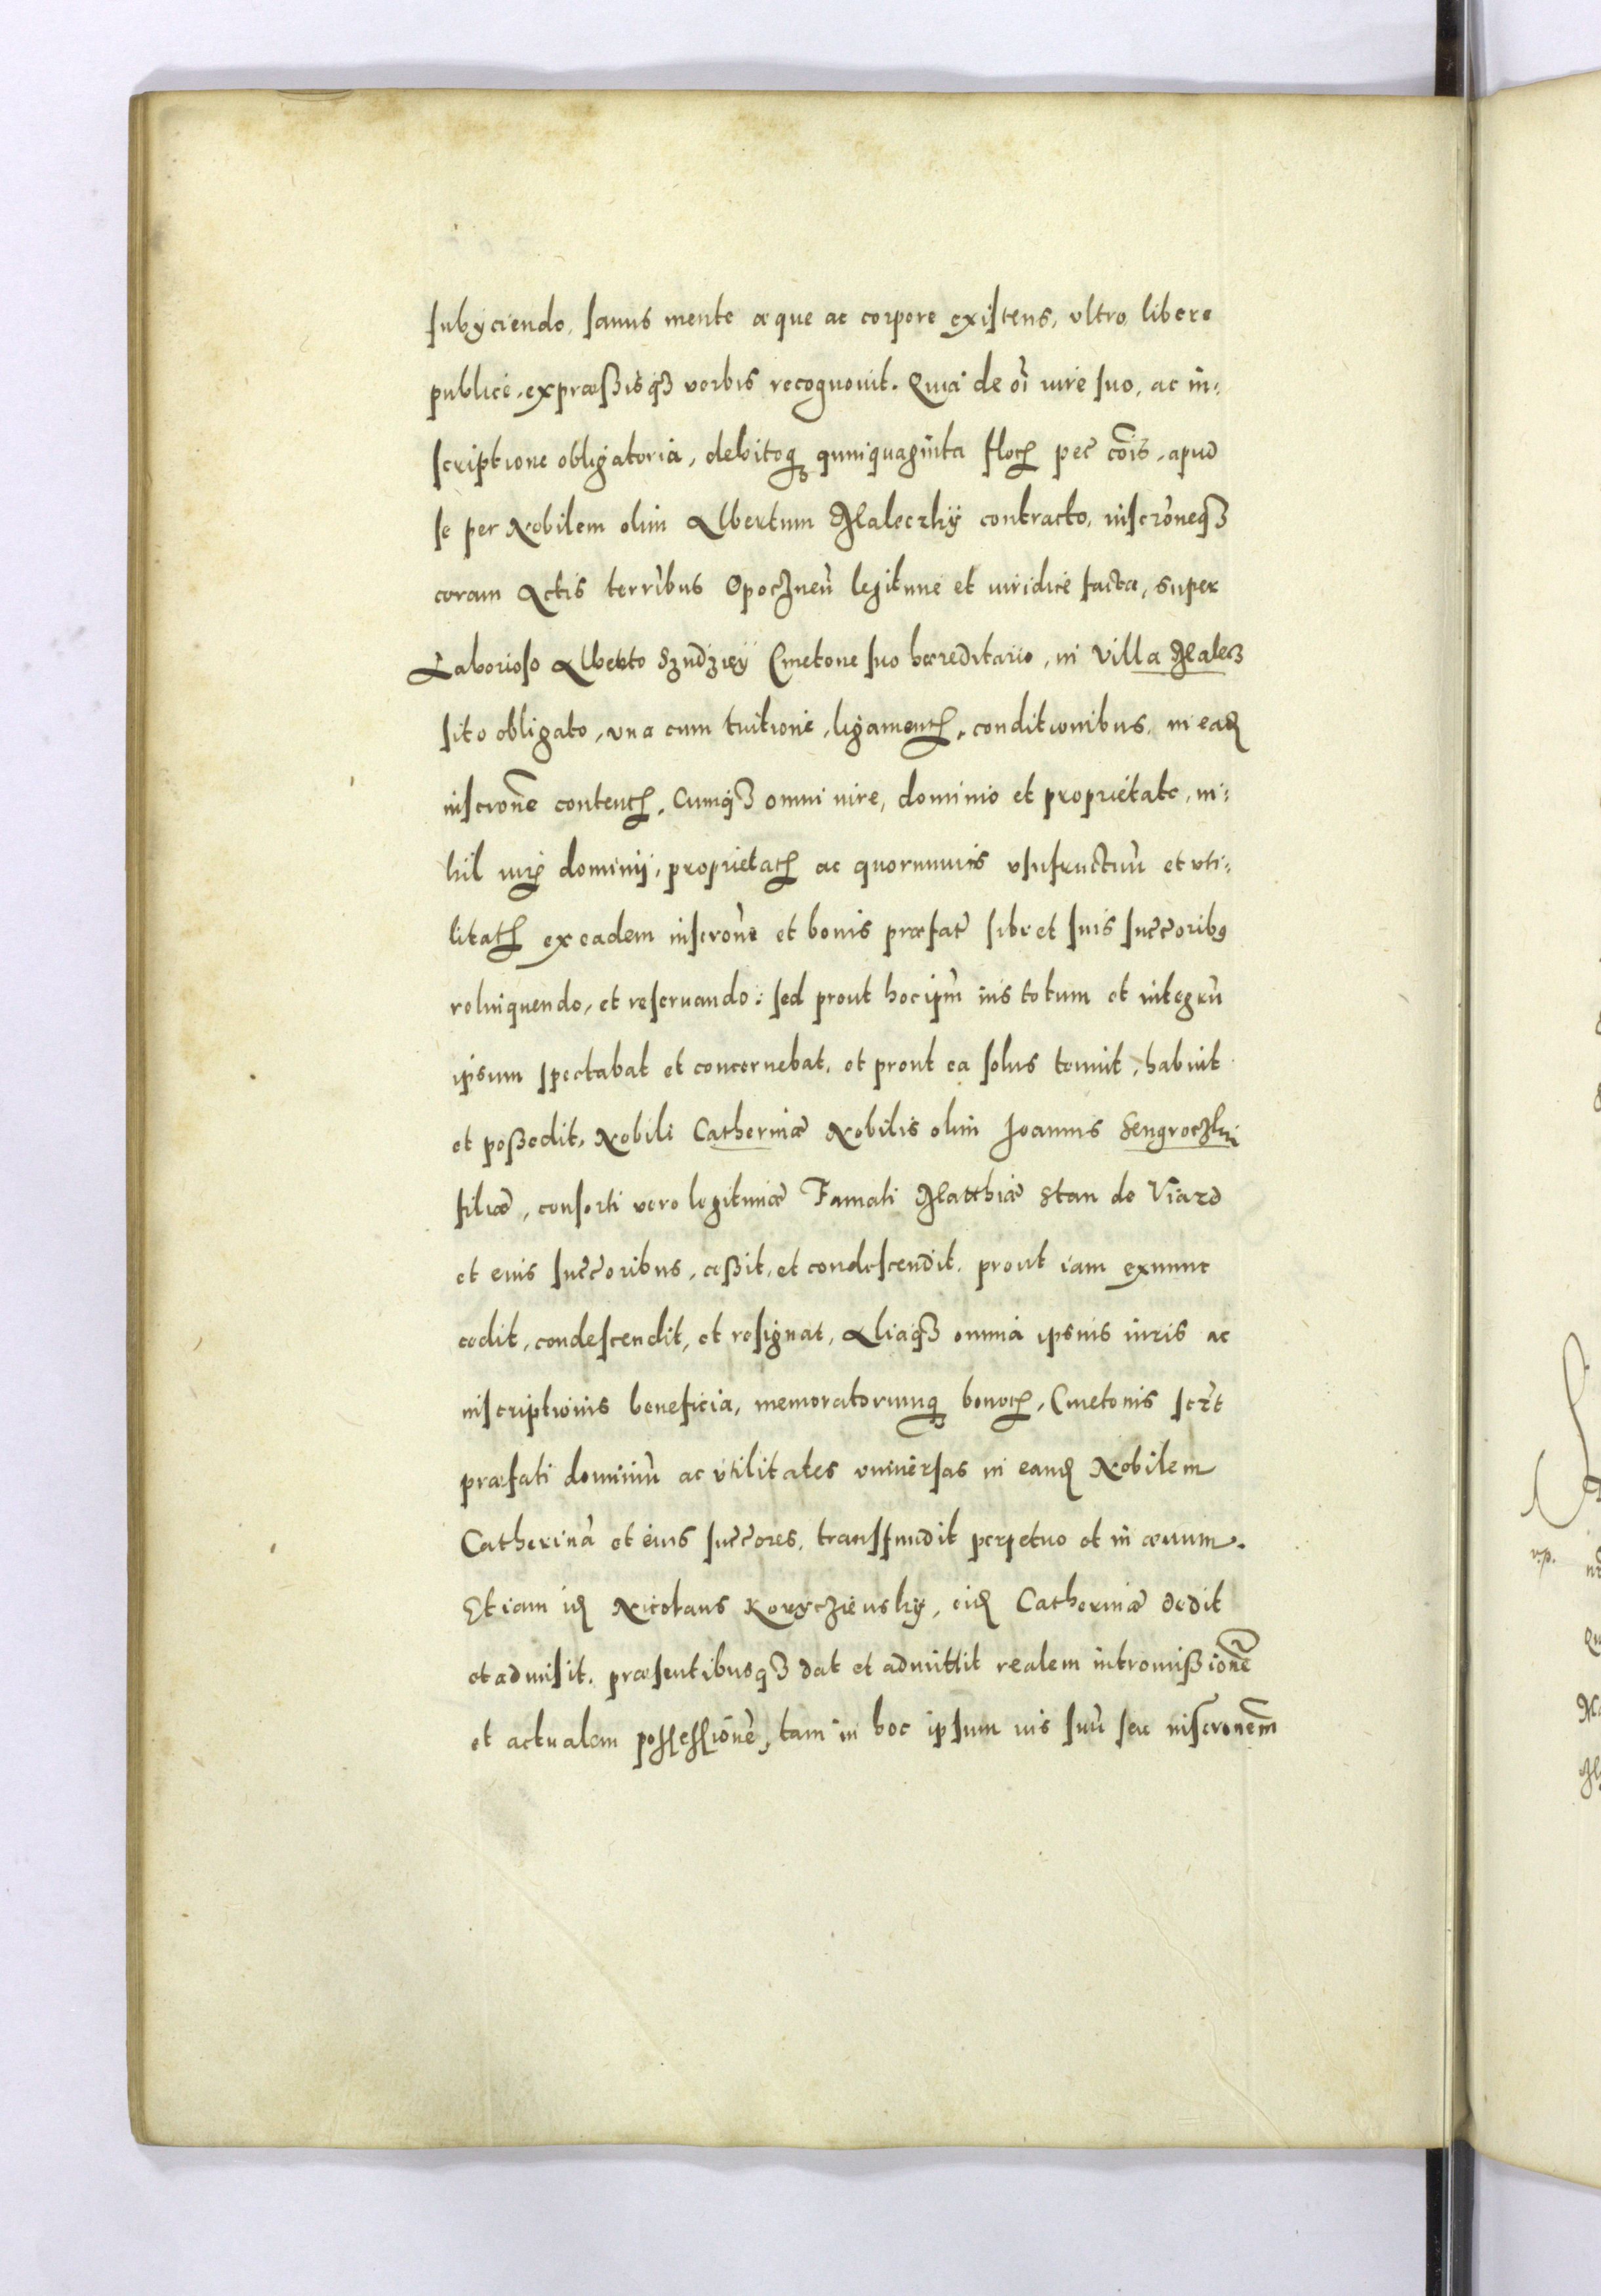 subyciendo, sanus mente aeque ac corpore existens, ultro, libere
publice, expraeßisq3 verbis recognovit. Quia de oi iure suo, ac in:
scriptione obligatoria, debitoq3 quinquaginta floꝝ pec cois, apud
se per Nobilem olim Albertum Maleczky contracto, inscroneq3
coram Actis terribus Opoczneñ legitime et iuridice facta, super
Laborioso Alberto Szudziey Cmetone suo haereditario, in Villa Malecz
sito obligato, una cum tuitione, ligamentꝭ, conditionibus, in eadꝫ
inscrone contentꝭ, Cumq3 omni iure, dominio et proprietate, ni:
hil iurꝭ dominij, proprietatꝭ ac quorumuis usufructuũ et uti:
litatꝭ ex eadem inscrone et bonis praefat sibi et suis succoribꝰ
relinquendo, et reseruando: sed prout hoc ipm ius totum et integrũ
ipsum spectabat et concernebat, et prout ea solus tenuit, habuit
et poßedit, Nobili Catherinae Nobilis olim Joannis Sengroczki
filiae, consorti vero legitimae Famati Matthiae Stan de Viazd
et eius succoribus, ceßit, et condescendit, prout iam exnunc
cedit, condescendit, et resignat, Aliaq3 omnia ipsius iuris ac
inscriptionis beneficia, memoratorumq3 bonoꝝ, Cmetonis scrt
praefati dominiũ ac utilitates universas in eandꝫ Nobilem
Catherinã et eius succores, transfundit perpetuo et in aevum.
Etiam idꝫ Nicolaus Koryczieński, eidꝫ Catherinae dedit
et admisit, praesentibusq3 dat et admittit realem intromißione
et actualem possessione, tam in hoc ipsum ius suũ seu inscronem